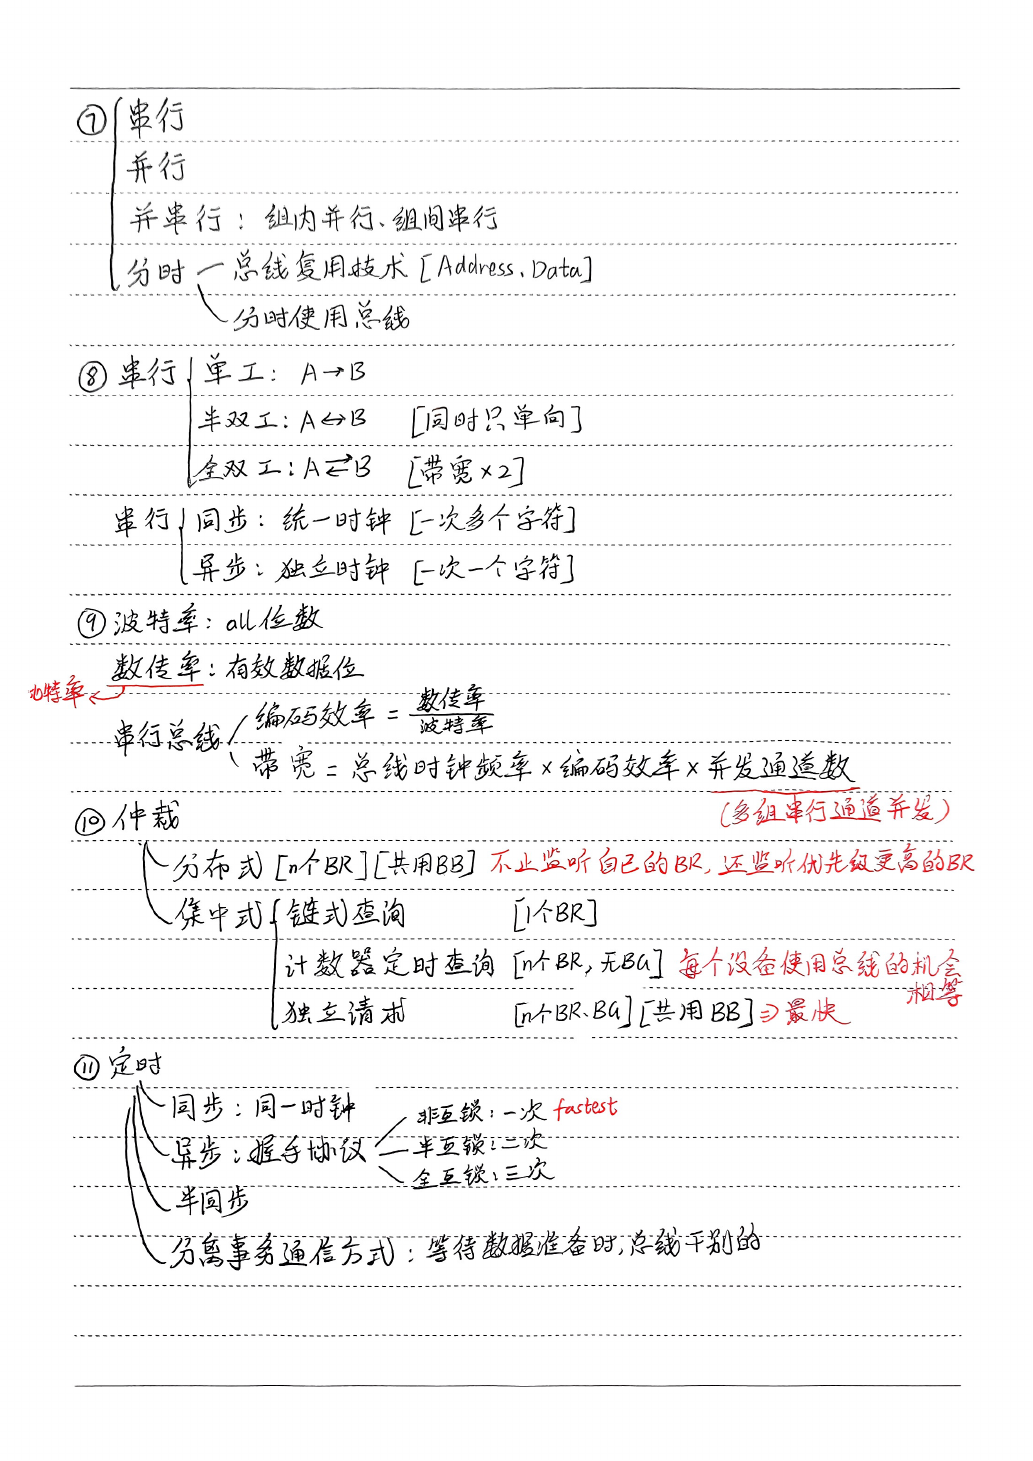 ⑦ 串行
并行
并串行：组内并行、组间串行
分时 — 总线复用技术 [Address、Data]
分时使用总线
⑧ 串行 单工：A→B
半双工：A↔B [同时只单向]
全双工：A⇄B [带宽×2]
串行 同步：统一时钟 [一次多个字符]
异步：独立时钟 [一次一个字符]
⑨ 波特率：all位数
数传率：有效数据位
比特率
串行总线 编码效率 = 数传率/波特率
带宽 = 总线时钟频率×编码效率×并发通道数
(多组串行通道并发)
⑩ 仲裁
分布式 [n个BR][共用BB] 不止监听自己的BR，还监听优先级更高的BR
集中式 链式查询 [1个BR]
计数器定时查询 [n个BR，无BG] 每个设备使用总线的机会
相等
独立请求 [n个BR、BG][共用BB]⇒最快
⑪ 定时
同步：同一时钟
非互锁：一次 fastest
异步：握手协议 半互锁：二次
全互锁：三次
半同步
分离事务通信方式：等待数据准备时，总线干别的